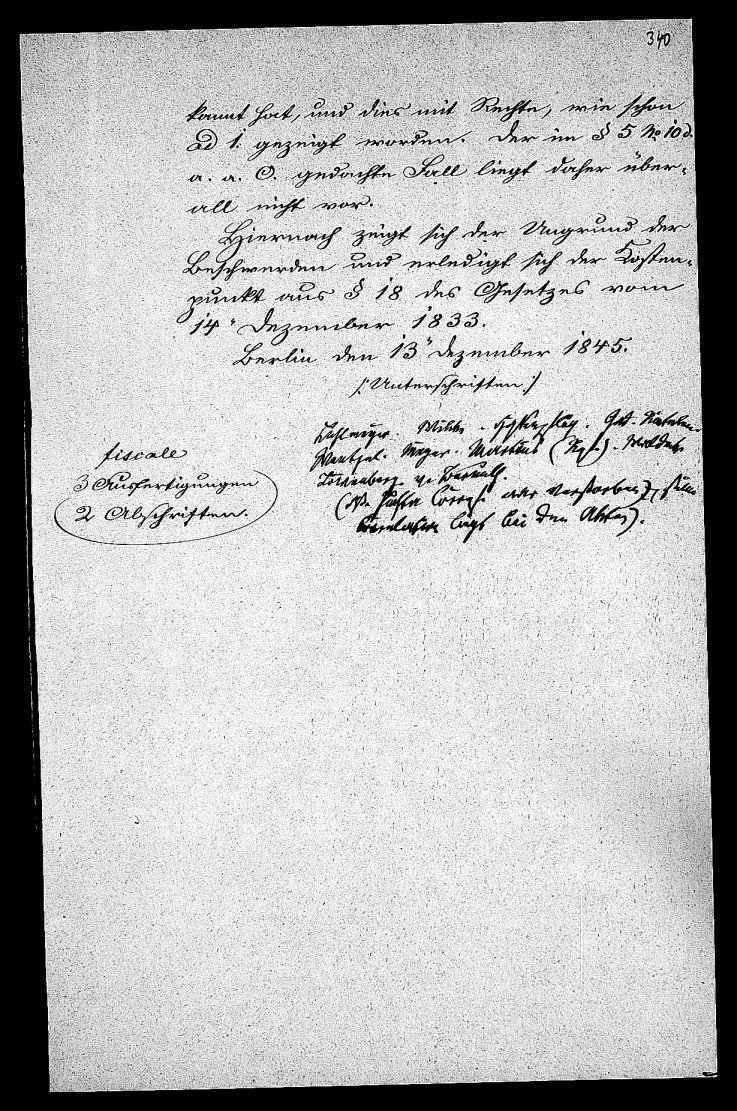 340
kannt hat, und dies mit Rechte, wie schon
ad 1. gezeigt worden. Der im § 5 No 10 d.
a. a. O. gedachte Fall liegt daher über-
all nicht vor.
Hiernach zeigt sich der Ungrund der
Beschwerden und erledigt sich der Kosten-
punkt aus § 18 des Gesetzes vom
14n Dezember 1833.
Berlin den 13n Dezember 1845.
/: Unterschriften :/
fiscale
3 Ausfertigungen
2 Abschriften.
war verstorben, seine
liegt bei den Akten).